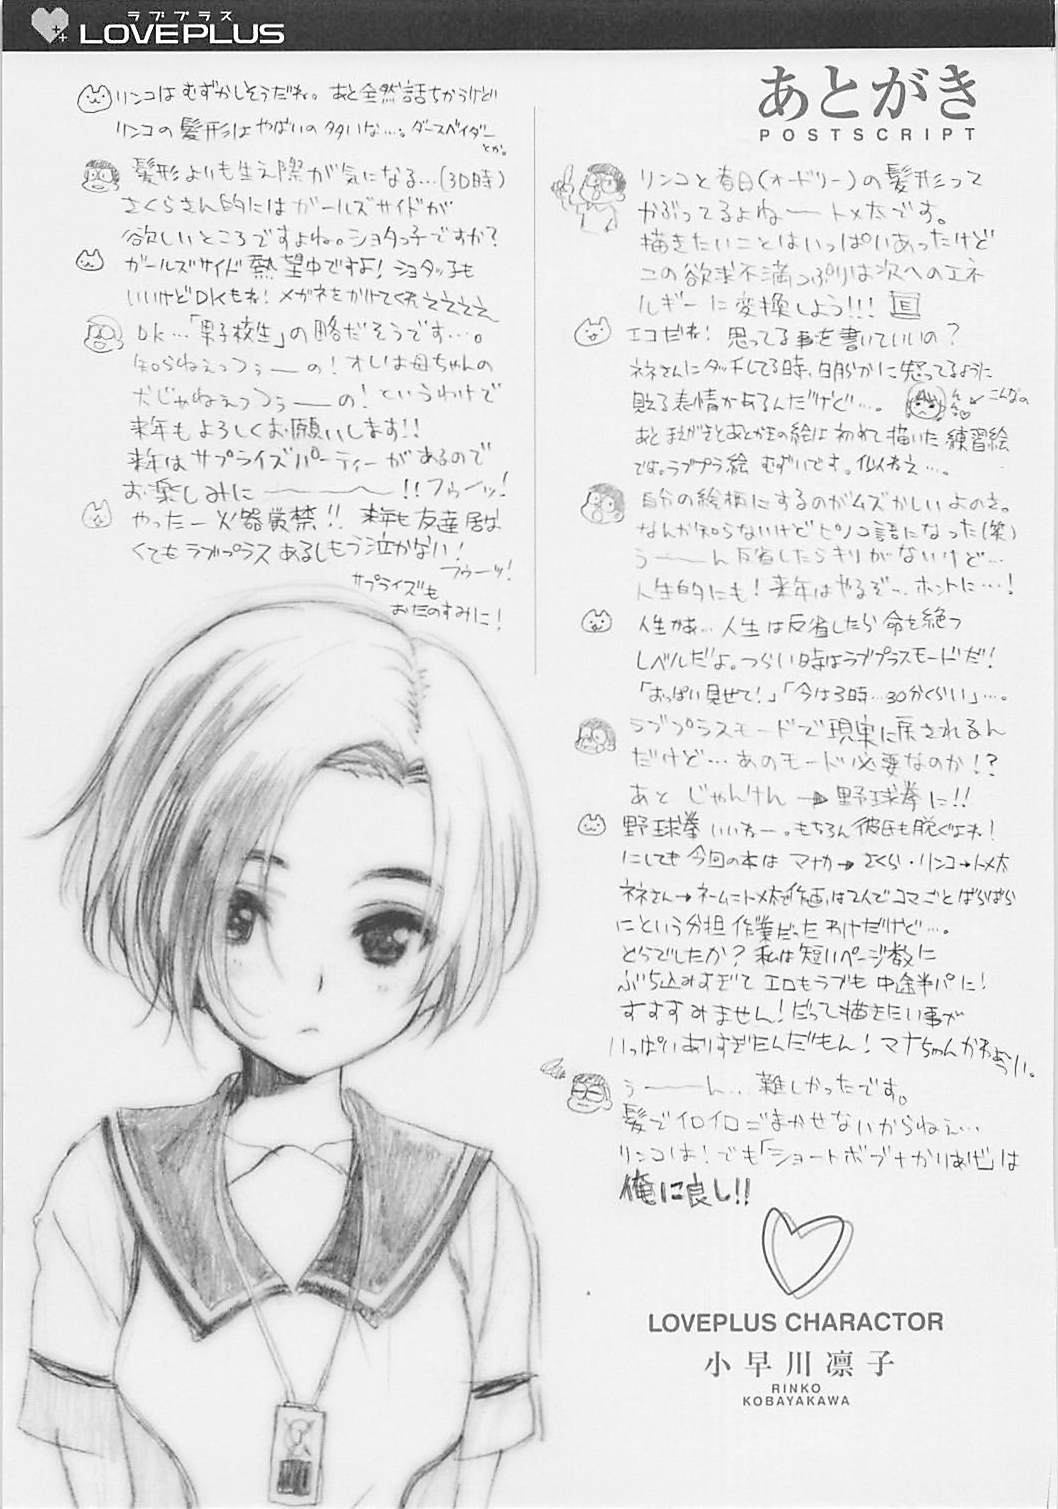 ラブプラス
LOVEPLUS
あとがき
POSTSCRIPT
リンコと春日(オードリー)の髪形って
かぶってるよねートメ太です。
描きたいことはいっぱいあったけど
この欲求不満っぷりは次へのエネ
ルギーに変換しよう!!!
エコだね!思ってる事を書いていいの?
ネネさんにタッチしてる時、明らかに怒ってるように
見える表情があるんだけど…。
こんなの
あとまえがきとあとがきの絵は初めて描いた練習絵
です。ラブプラ絵むずいです。似ねえ…。
自分の絵柄にするのがムズかしいよのさ。
なんか知らないけどピノコ語になった(笑)
うーーん反省したらキリがないけど…
人生的にも!来年はやるぞっ、ホントに…!
人生かぁ…人生は反省したら命を絶つ
レベルだよ。つらい時はラブプラスモードだ!
「おっぱい見せて!」「今は3時…30分くらい」…。
ラブプラスモードで現実に戻されるん
だけど…あのモード必要なのか!?
あと じゃんけん→野球拳に!!
野球拳いいねー。もちろん彼氏も脱ぐよね!
にしても今回の本は マナカ→さくら・リンコ→トメ太
ネネさん→ネームにトメ太で作画は2人でコマごとばらばら
にという分担作業だったわけだけど…。
どうでしたか?私は短いページ数に
ぶち込みすぎて エロもラブも中途半パに!
すすすみません!だって描きたい事が
いっぱいありすぎたんだもん!マナちゃんかわぁうぃ。
うーーん…難しかったです。
髪でイロイロごまかせないからねぇ…
リンコは!でも「ショートボブ+かりあげ」は
俺に良し!!
リンコはむずかしそうだね。あと全然話ちがうけど
リンコの髪形はやばいの多いな…。ダースベイダー
とか。
髪形よりも生え際が気になる…(3D時)
さくらさん的にはガールズサイドが
欲しいところですよね。ショタっ子ですか?
ガールズサイド熱望中ですよ!ショタッ子も
いいけどDKもね!メガネをかけてくれええええ
DK…「男子校生」の略だそうです…。
知らねえっつぅーの!オレは母ちゃんの
犬じゃねえっつぅーの!というわけで
来年もよろしくお願いします!!
来年はサプライズパーティーがあるので
お楽しみに〜〜〜!!フゥーッ!
やったー火器厳禁!!来年も友達居な
くてもラブプラスあるしもう泣かない!
フゥーッ!
サプライズも
おたのすみに!
LOVEPLUS CHARACTOR
小早川凛子
RINKO
KOBAYAKAWA